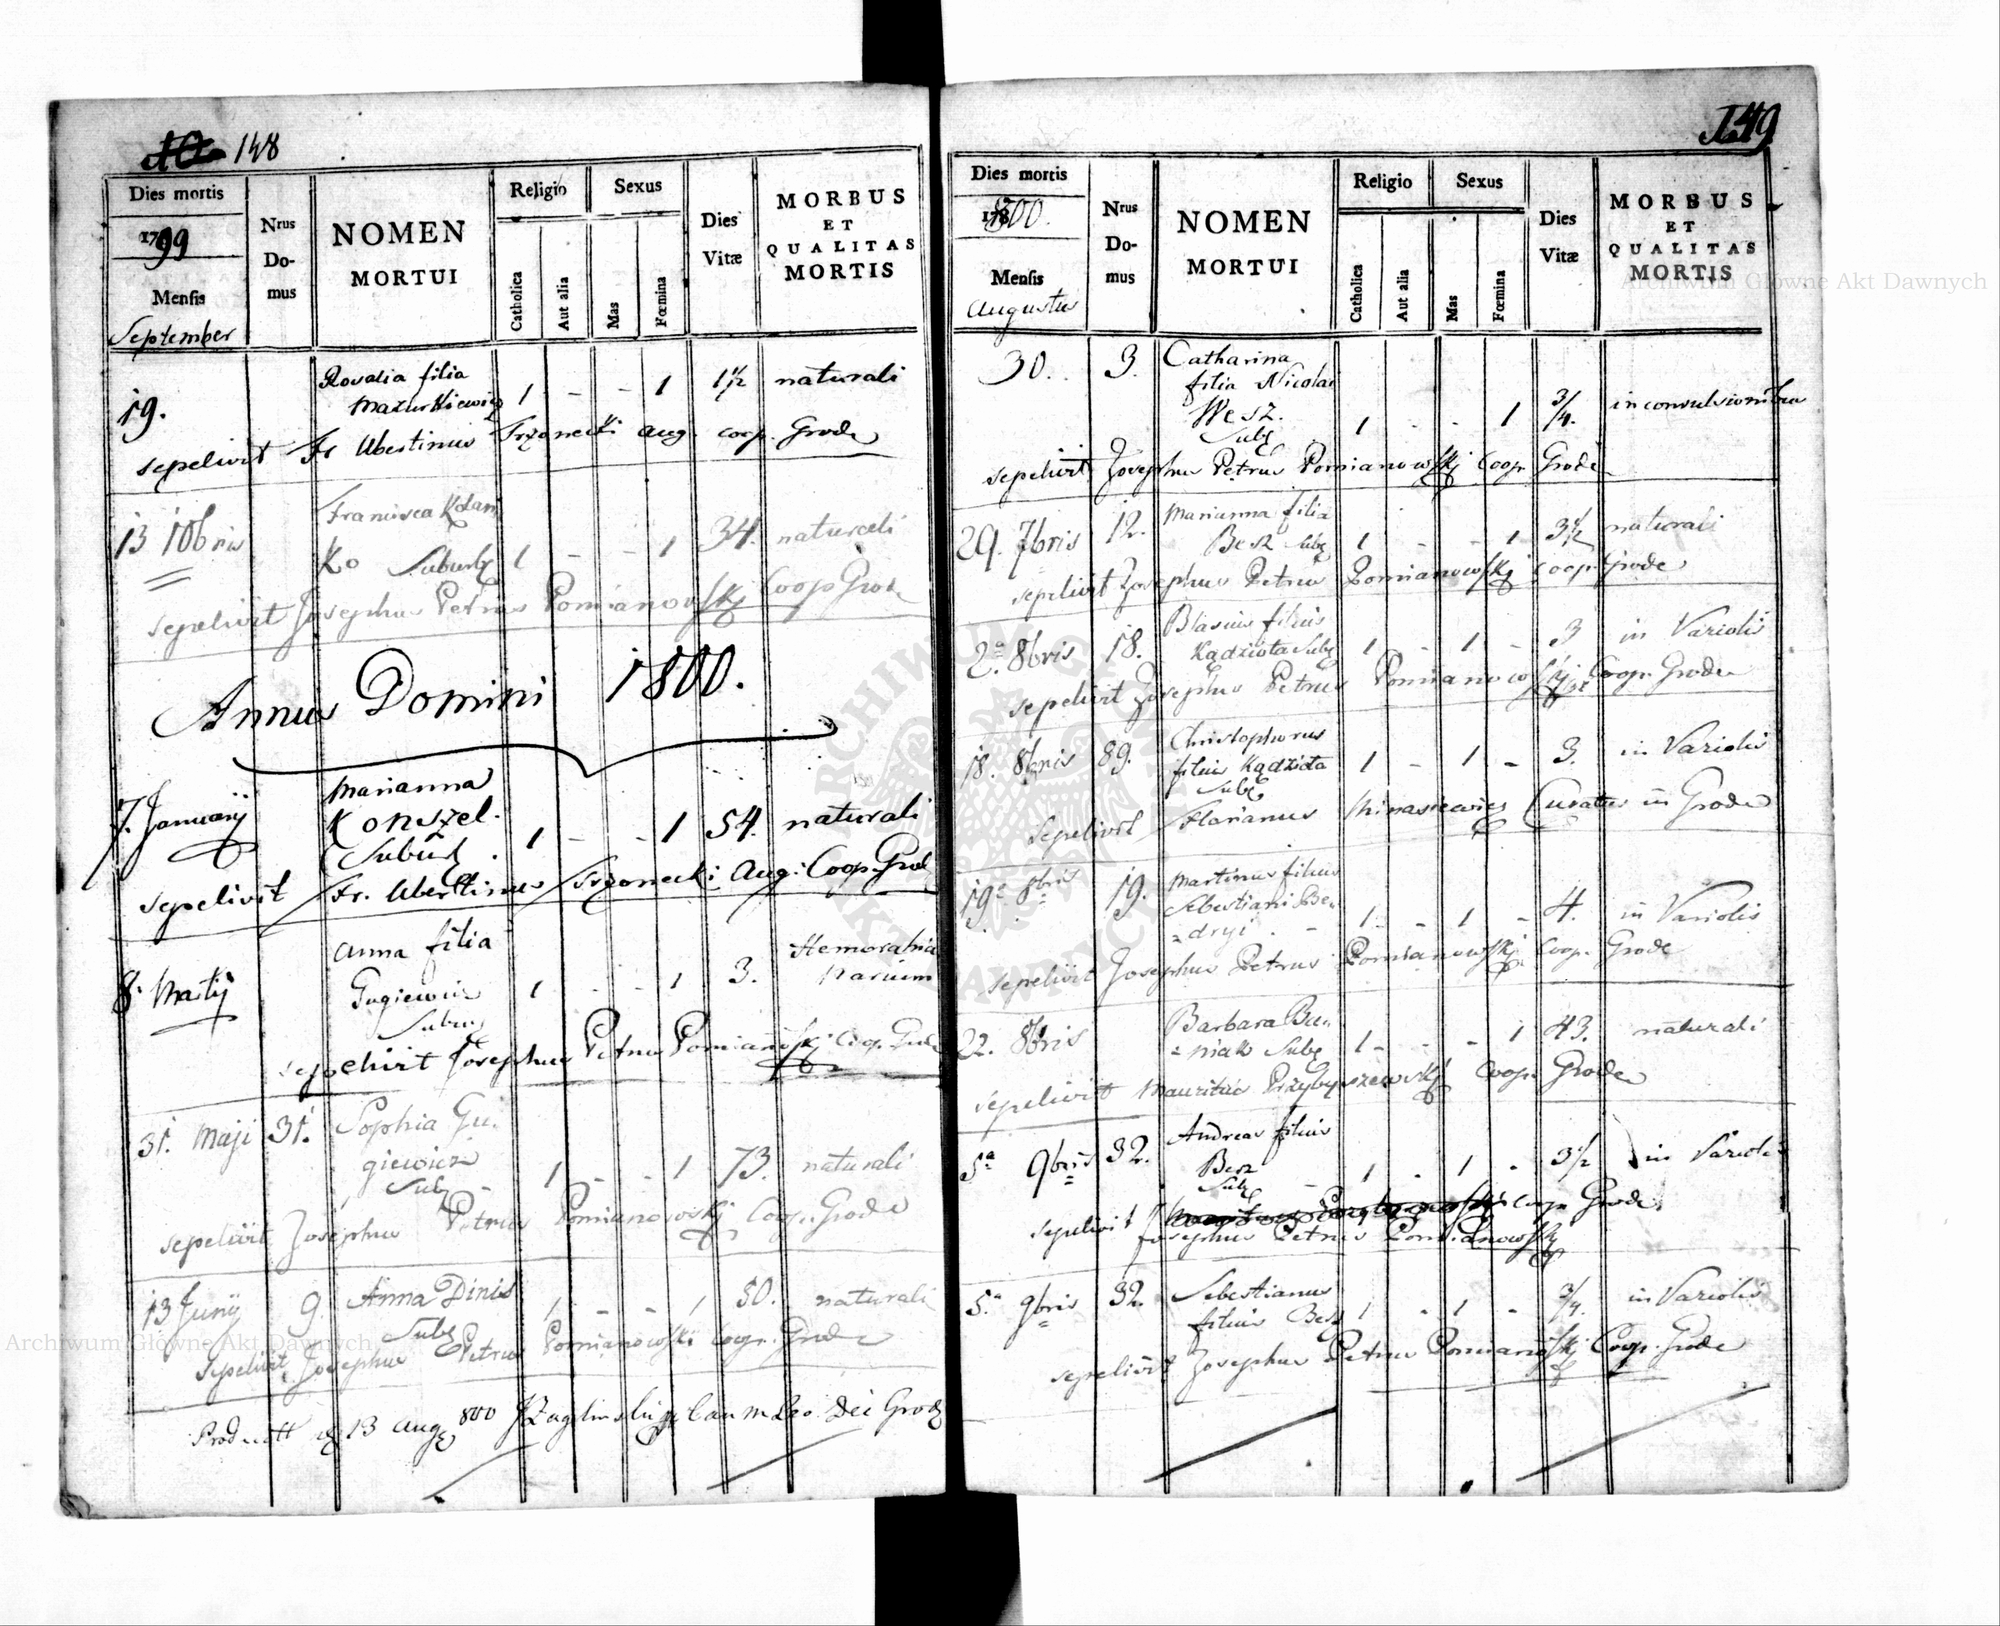 148
Dies mortis
1799
Mensis
September
Nrus
Do-
mus
NOMEN
MORTUI
Religio
Catholica
Aut alia
Sexus
Mas
Fœmina
Dies
Vitæ
MORBUS
ET
QUALITAS
MORTIS
Rosalia filia
19. Mazurkiewicz 1 - - 1 1½ naturali
sepelivit Fr Ubertinus Trzonecki Aug. coop. Grode
Francisca
13 10bris ko Suburb 1 - - 1 34. naturali
sepelivit Josephus Petrus Pomianowskj Coop Grode
Annus Domini 1800.
Marianna
7. Januarij Konszel. 1 - - 1 54. naturali
Suburb.
sepelivit Fr. Ubertinus Trzonecki Aug: Coop. Grod
Anna filia Hemorahia
8. Maij Gugiewicz 1 - - 1 3. narium
Suburb
sepelivit Josephus Petrus Pomianoskj Coop. Grode
31. Maji 31. Sophia Gu-
giewicz 1 - - 1 73. naturali
Sub
sepelivit Josephus Petrus Pomianowskj Coop. Grode
13 Junij 9. Anna Dinis 1 - - 1 50. naturali
Sub
sepelivit Josephus Petrus Pomianowski Coop. Grode
13 Aug 800
149
Dies mortis
1800.
Mensis
Augustus
Nrus
Do-
mus
NOMEN
MORTUI
Religio
Catholica
Aut alia
Sexus
Mas
Fœmina
Dies
Vitæ
MORBUS
ET
QUALITAS
MORTIS
30. 3. Catharina
filia Nicolai
Wesz. 1 - - 1 3/4. in convulsionibus
Sub
sepelivit Josephus Petrus Pomianowskj Coop. Grode
29. 7bris 12. Marianna filia
Besz Sub 1 - - 1 3½ naturali
sepelivit Josephus Petrus Pomianowskj Coop. Grode
Blasius filius
2a 8bris 18. Kądziota Sub 1 - 1 - 3 in Variolis
sepelivit Josephus Petrus Pomianowskj Coop. Grode
Christophorus
18. 8bris 89. filius Kądziota 1 - 1 - 3. in Variolis
Sub
Sepelivit Florianus Minasiewicz Curatus in Grode
19a 8bris 19. Martinus filius
Sebestiani Be-
dryi 1 - 1 - 4. in Variolis
sepelivit Josephus Petrus Pomianowskj Coop. Grode
22. 8bris Barbara Bu-
niak Sub 1 - - 1 43. naturali
sepelivit Mauritius Przybyszewskj Coop. Grode
Andreas filius
5a 9bris 32. Besz 1 - 1 - 3½ in Variolis
Sub
sepelivit Coop. Grode
Josephus Petrus Pomianowskj
5a 9bris 32. Sebestianus
filius Besz 1 - 1 - 3/4. in Variolis
sepelivit Josephus Petrus Pomianoskj Coop. Grode
Archiwum Główne Akt Dawnych
Archiwum Główne Akt Dawnych